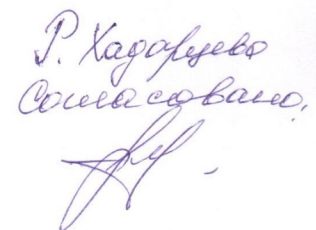 Р. Хадарцева
Согласовано.